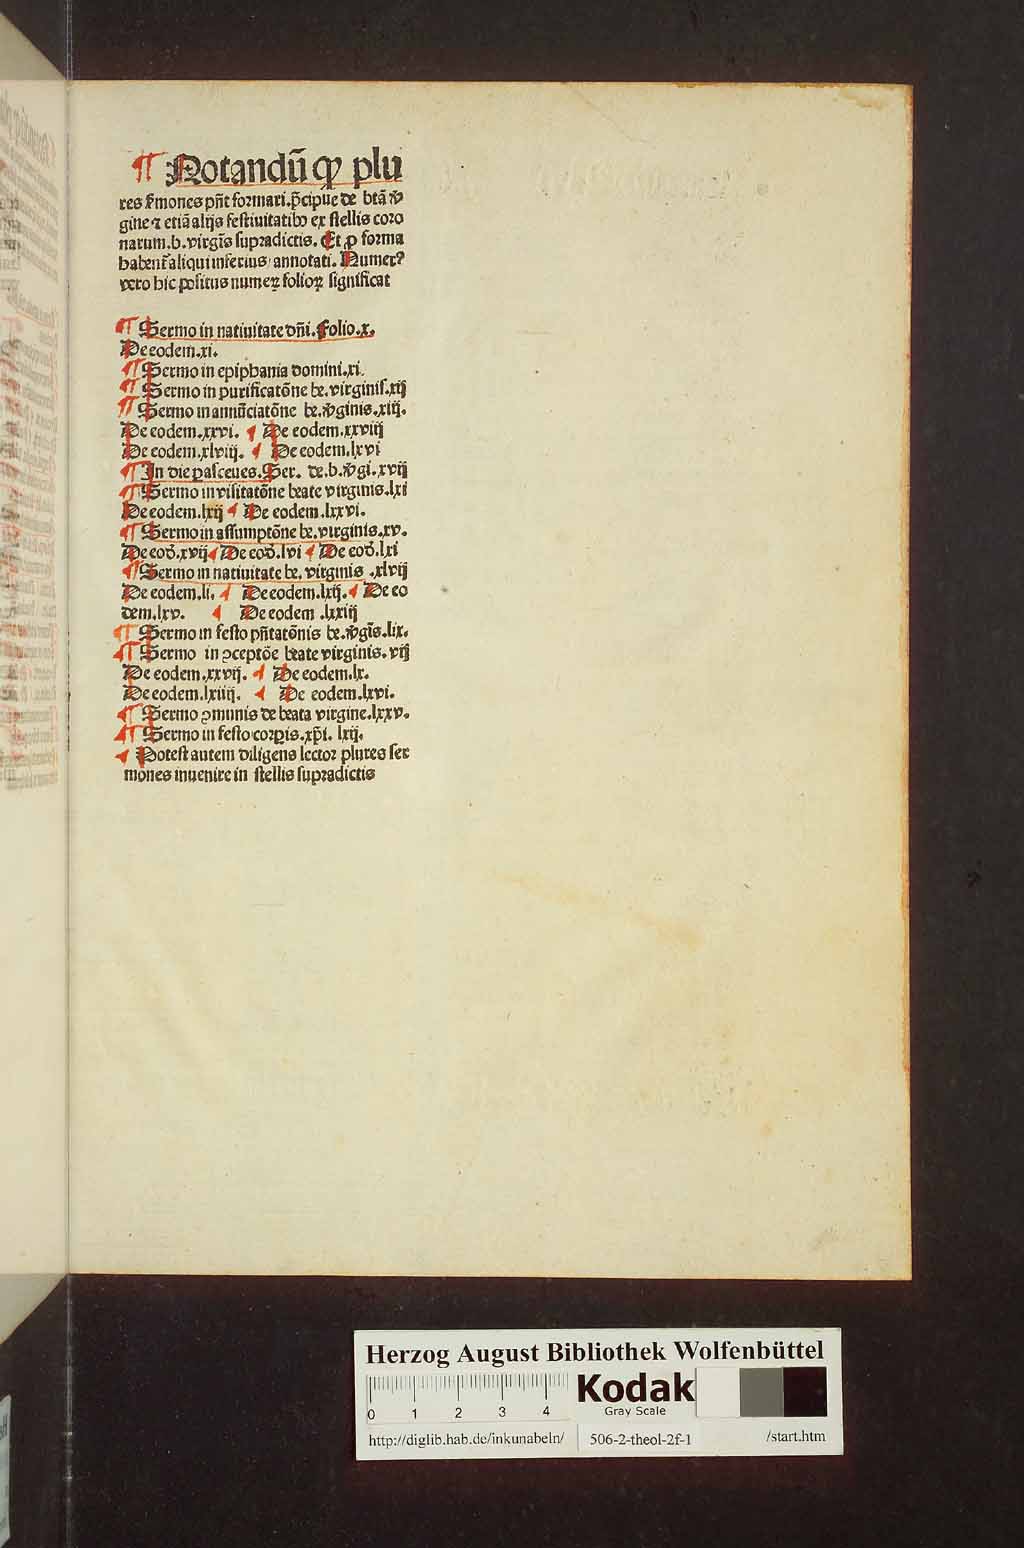 ¶ Notandū ꝙ plu
res ẜmones pñt formari. p̄cipue de btā v̄
gine ⁊ etiā alijs festiuitatibꝰ ex stellis coro
narum .b. virgīs supradictis. Et ꝓ forma
habent᷑ aliqui inferius annotati. Numerꝰ
vero hic positus numeꝝ folioꝝ significat
¶ Sermo in natiuitate dñi. Folio .x.
De eodem .xi.
¶ Sermo in epiphania domini .xi.
¶ Sermo in purificatōne be. virginis .xij
¶ Sermo in annūciatōne be. v̄ginis .xiij.
De eodem .xxvi. ¶ De eodem .xxviij
De eodem .xlviij. ¶ De eodem .lxvi
¶ In die parasceues. Ser. de .b. v̄gi. xvij
¶ Sermo in visitatōne beate virginis .lxi
De eodem .lxij ¶ De eodem .lxxvi.
¶ Sermo in assumptōne be. virginis .xv.
De eod̄ .xvij ¶ De eod̄ .lvi ¶ De eod̄ .lxi
¶ Sermo in natiuitate be. virginis .xlvij
De eodem .li. ¶ De eodem .lxij. ¶ De eo
dem .lxv. ¶ De eodem .lxxiij
¶ Sermo in festo pñtatōnis be. v̄gīs .lix.
¶ Sermo in ꝯceptōe beate virginis. vij
De eodem .xxvij. ¶ De eodem .lx.
De eodem .lxiiij. ¶ De eodem .lxvi.
¶ Sermo ꝯmunis de beata virgine .lxxv.
¶ Sermo in festo corꝑis .xp̄i. lxij.
¶ Potest autem diligens lector plures ser
mones inuenire in stellis supradictis
Herzog August Bibliothek Wolfenbüttel
0 1 2 3 4
Kodak
Gray Scale
http://diglib.hab.de/inkunabeln/ 506-2-theol-2f-1 /start.htm